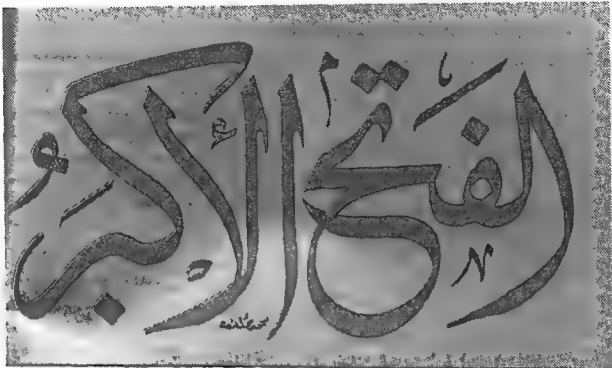 الفتح الأكبر